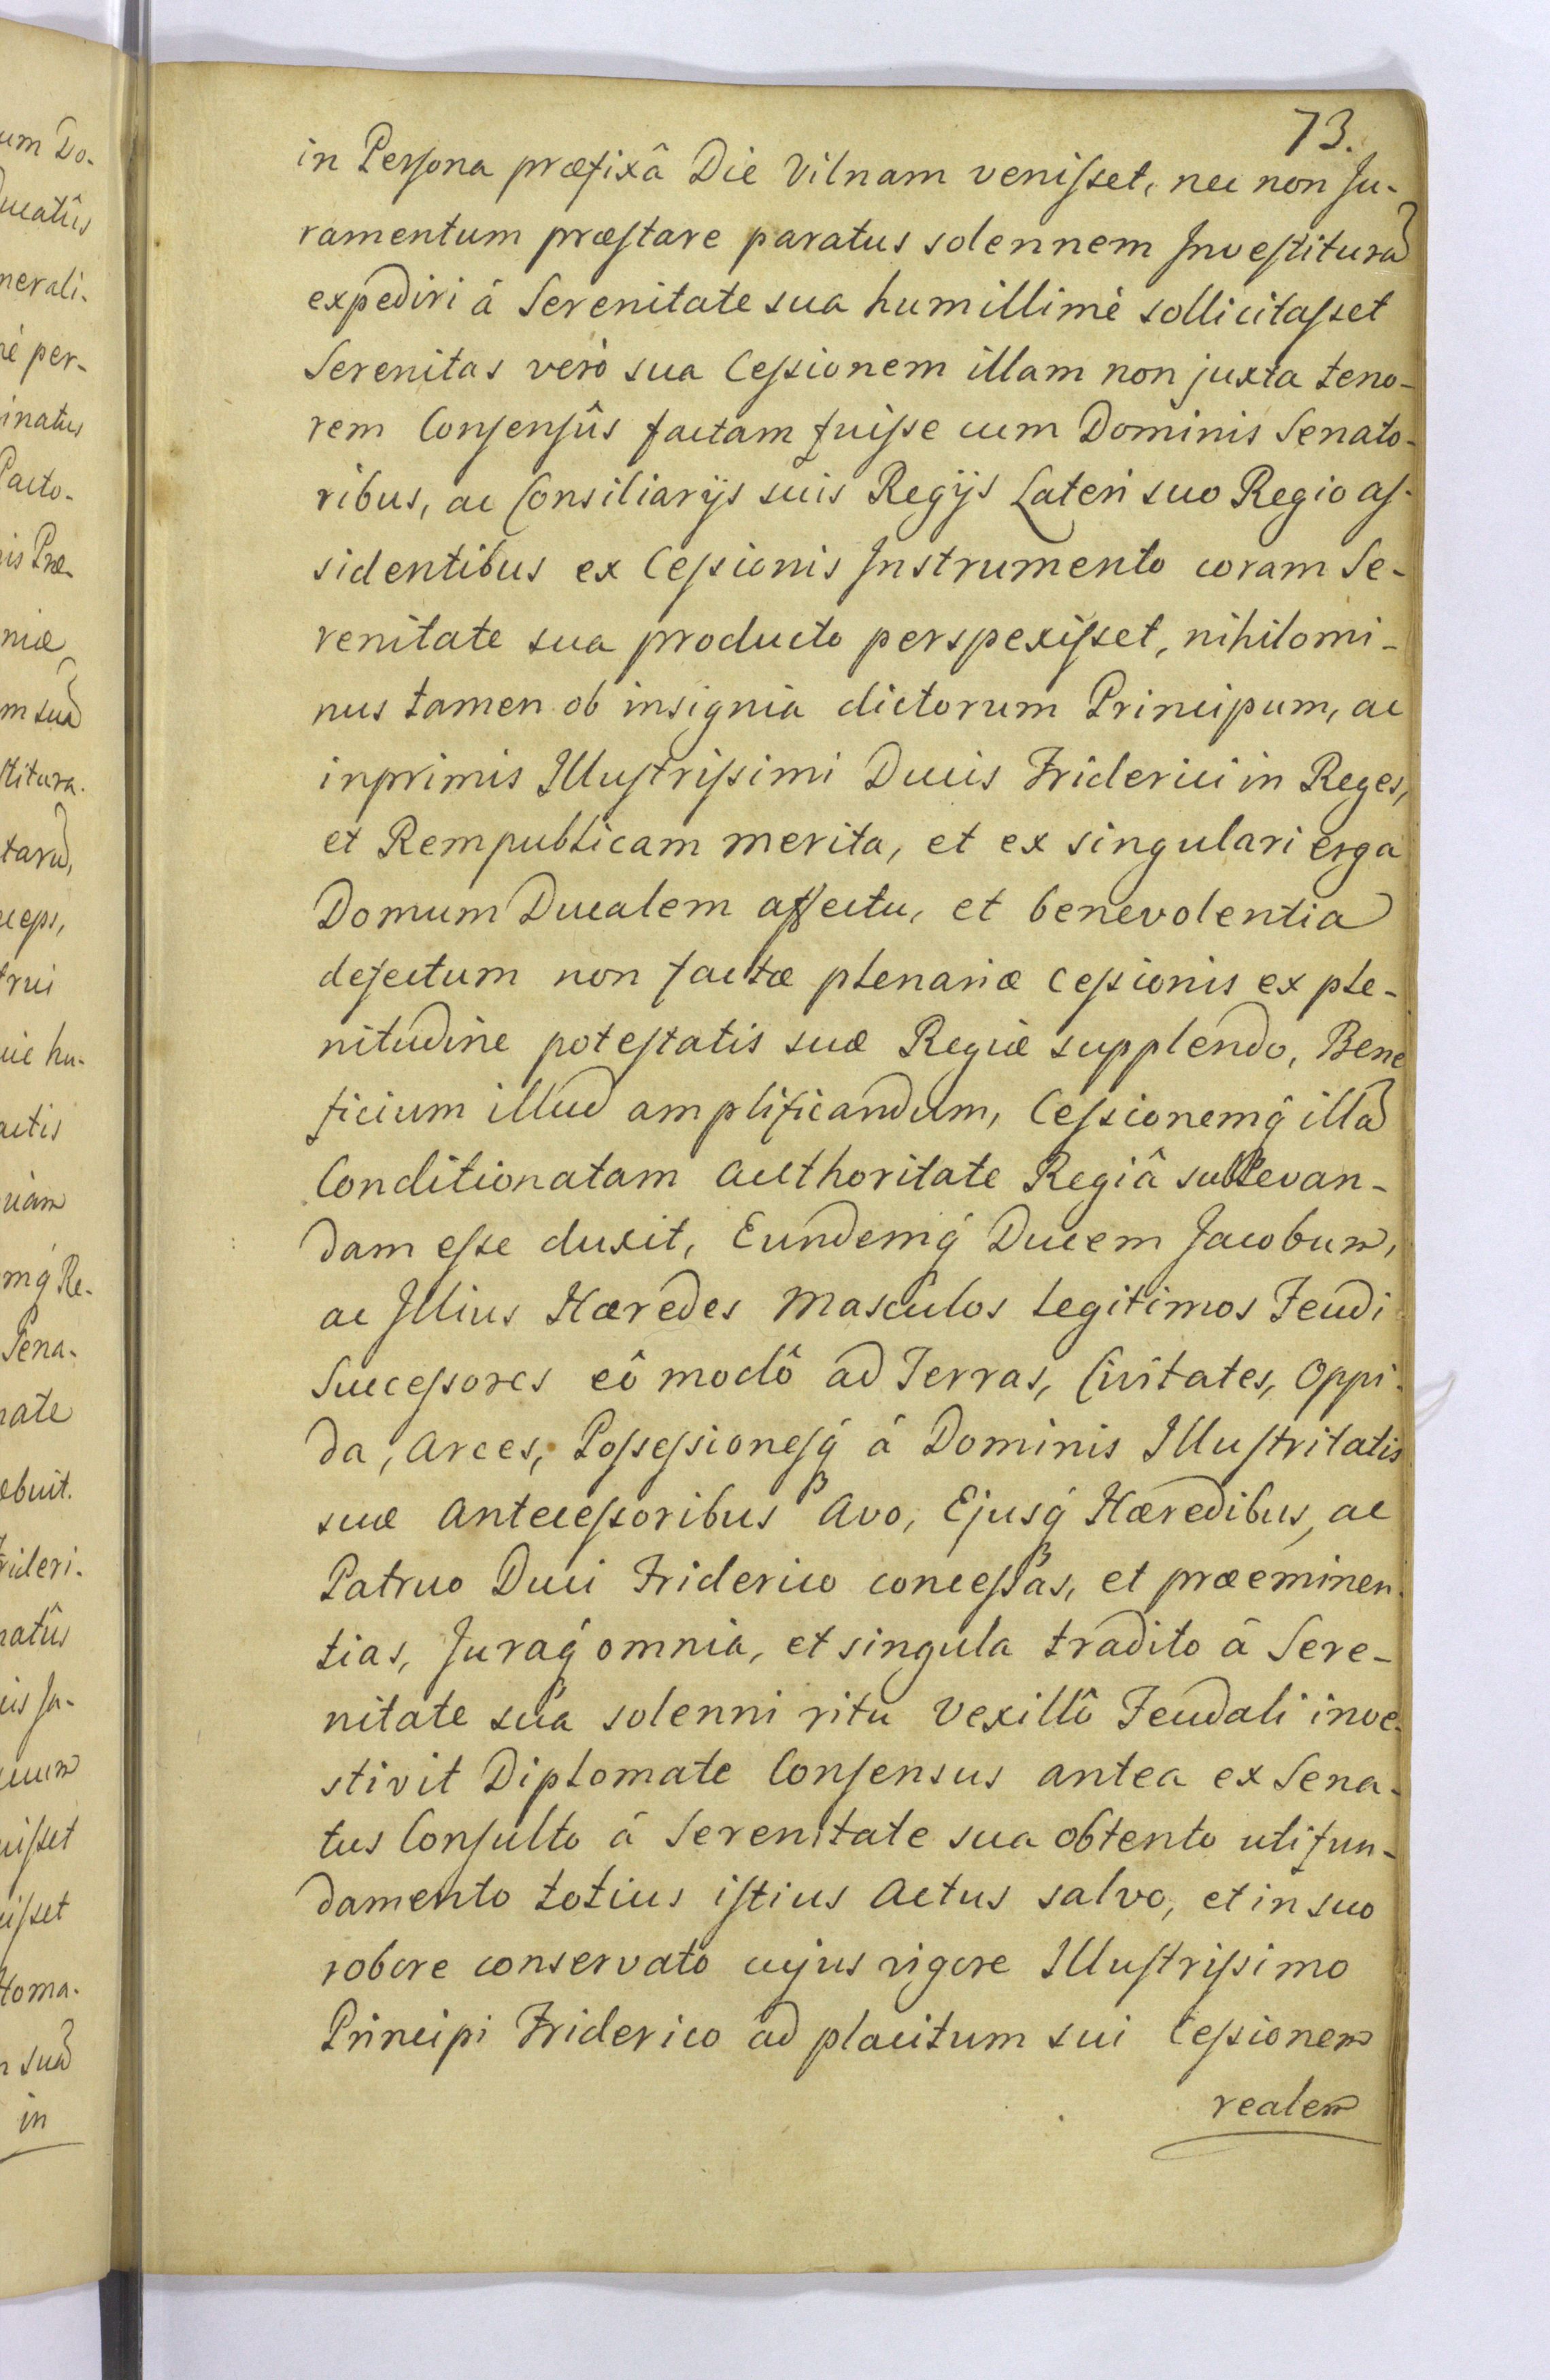 73.
in Perſona præfixâ Die Vilnam veniſset, nec non Ju-
ramentum præſtare paratus solennem Inveſtiturã
expediri á Serenitate sua humillimè sollicitaſset
Serenitas verò sua Ceſsionem illam non juxta teno-
rem Conſenſûs factam fuiſse cum Dominis Senato-
ribus, ac Consiliarÿs suis Regÿs Lateri suo Regio aſ-
sidentibus ex Ceſsionis Instrumento coram Se-
renitate sua producto perspexiſset, nihilomi-
nus tamen ob insignia dictorum Principum, ac
inprimis Illuſtriſsimi Ducis Friderici in Reges,
et Rempublicam merita, et ex singulari erga
Domum Ducalem affectu, et benevolentia
defectum non factæ plenariæ Ceſsionis ex ple-
nitudine poteſtatis suæ Regiæ supplendo, Bene
ficium illud amplificandum, Ceſsionemq́ illã
Conditionatam Authoritate Regiâ sublevan-
dam eſse duxit, Eundemq́ Ducem Jacobum,
ac Illius Hæredes Masculos Legitimos Feudi
Succeſsores eô modô ad Terras, Civitates, Oppi-
da, Arces, Poſseſsioneſq́ á Dominis Illuſtritatis
suæ Anteceſsoribus Avo, Ejusq́ Hæredibus, ac
Patruo Duci Friderico conceſsas, et præeminen-
tias, Juraq́ omnia, et singula tradito á Sere-
nitate sua solenni ritu Vexillô Feudali inve-
stivit Diplomate Conſensus antea ex Sena-
tus Conſulto á Serenitate sua obtento uti fun-
damento totius iſtius Actus salvo, et in suo
robore conservato cujus vigore Illuſtriſsimo
Principi Friderico ad placitum sui Ceſsionem
realem
um Do-
Ducatûs
nerali-
né per-
inatus
Pacto-
is Præ-
niæ
m suã
ſtitura.
tarũ,
ceps,
ic hu-
actis
riam
mq́ Re-
Sena-
nate
ebuit.
rideri-
natûs
is Ju-
uum
uiſset
uiſset
toma-
n suã
in